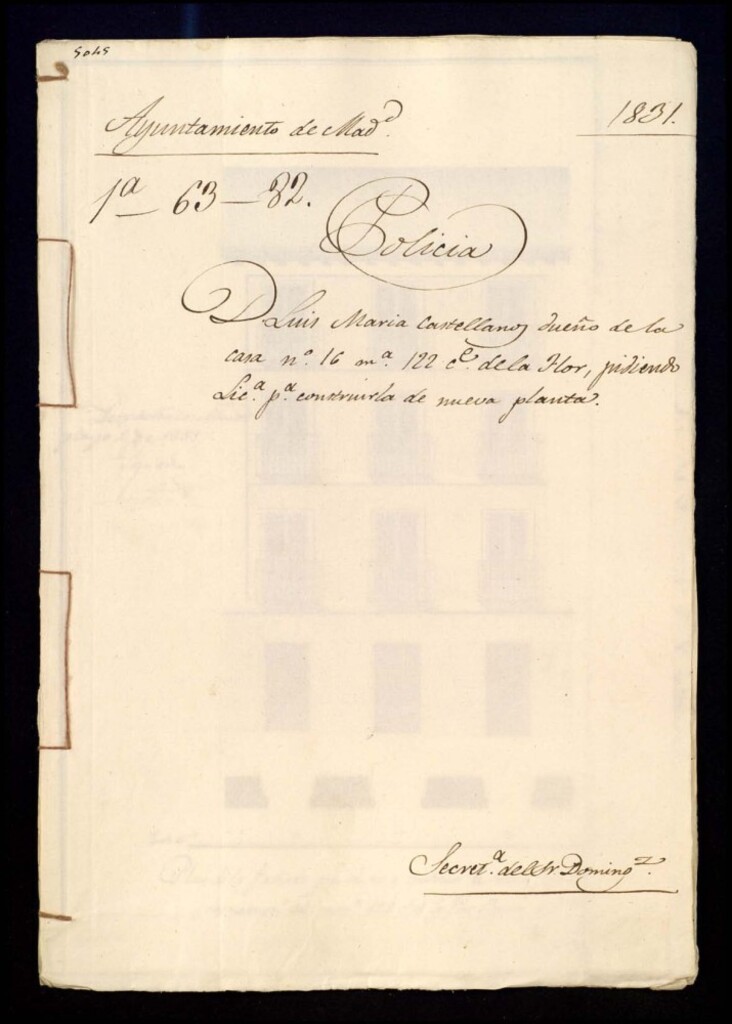 5045
Ayuntamiento de Mad.d
1831.
1a 63-82.
Policia
D Luis Maria Castellanos dueño de la
casa n.o 16 m.a 122 c.e de la Flor, pidiendo
Lic.a p.a construirla de nueva planta.
Secret.a del Sr Doming.z